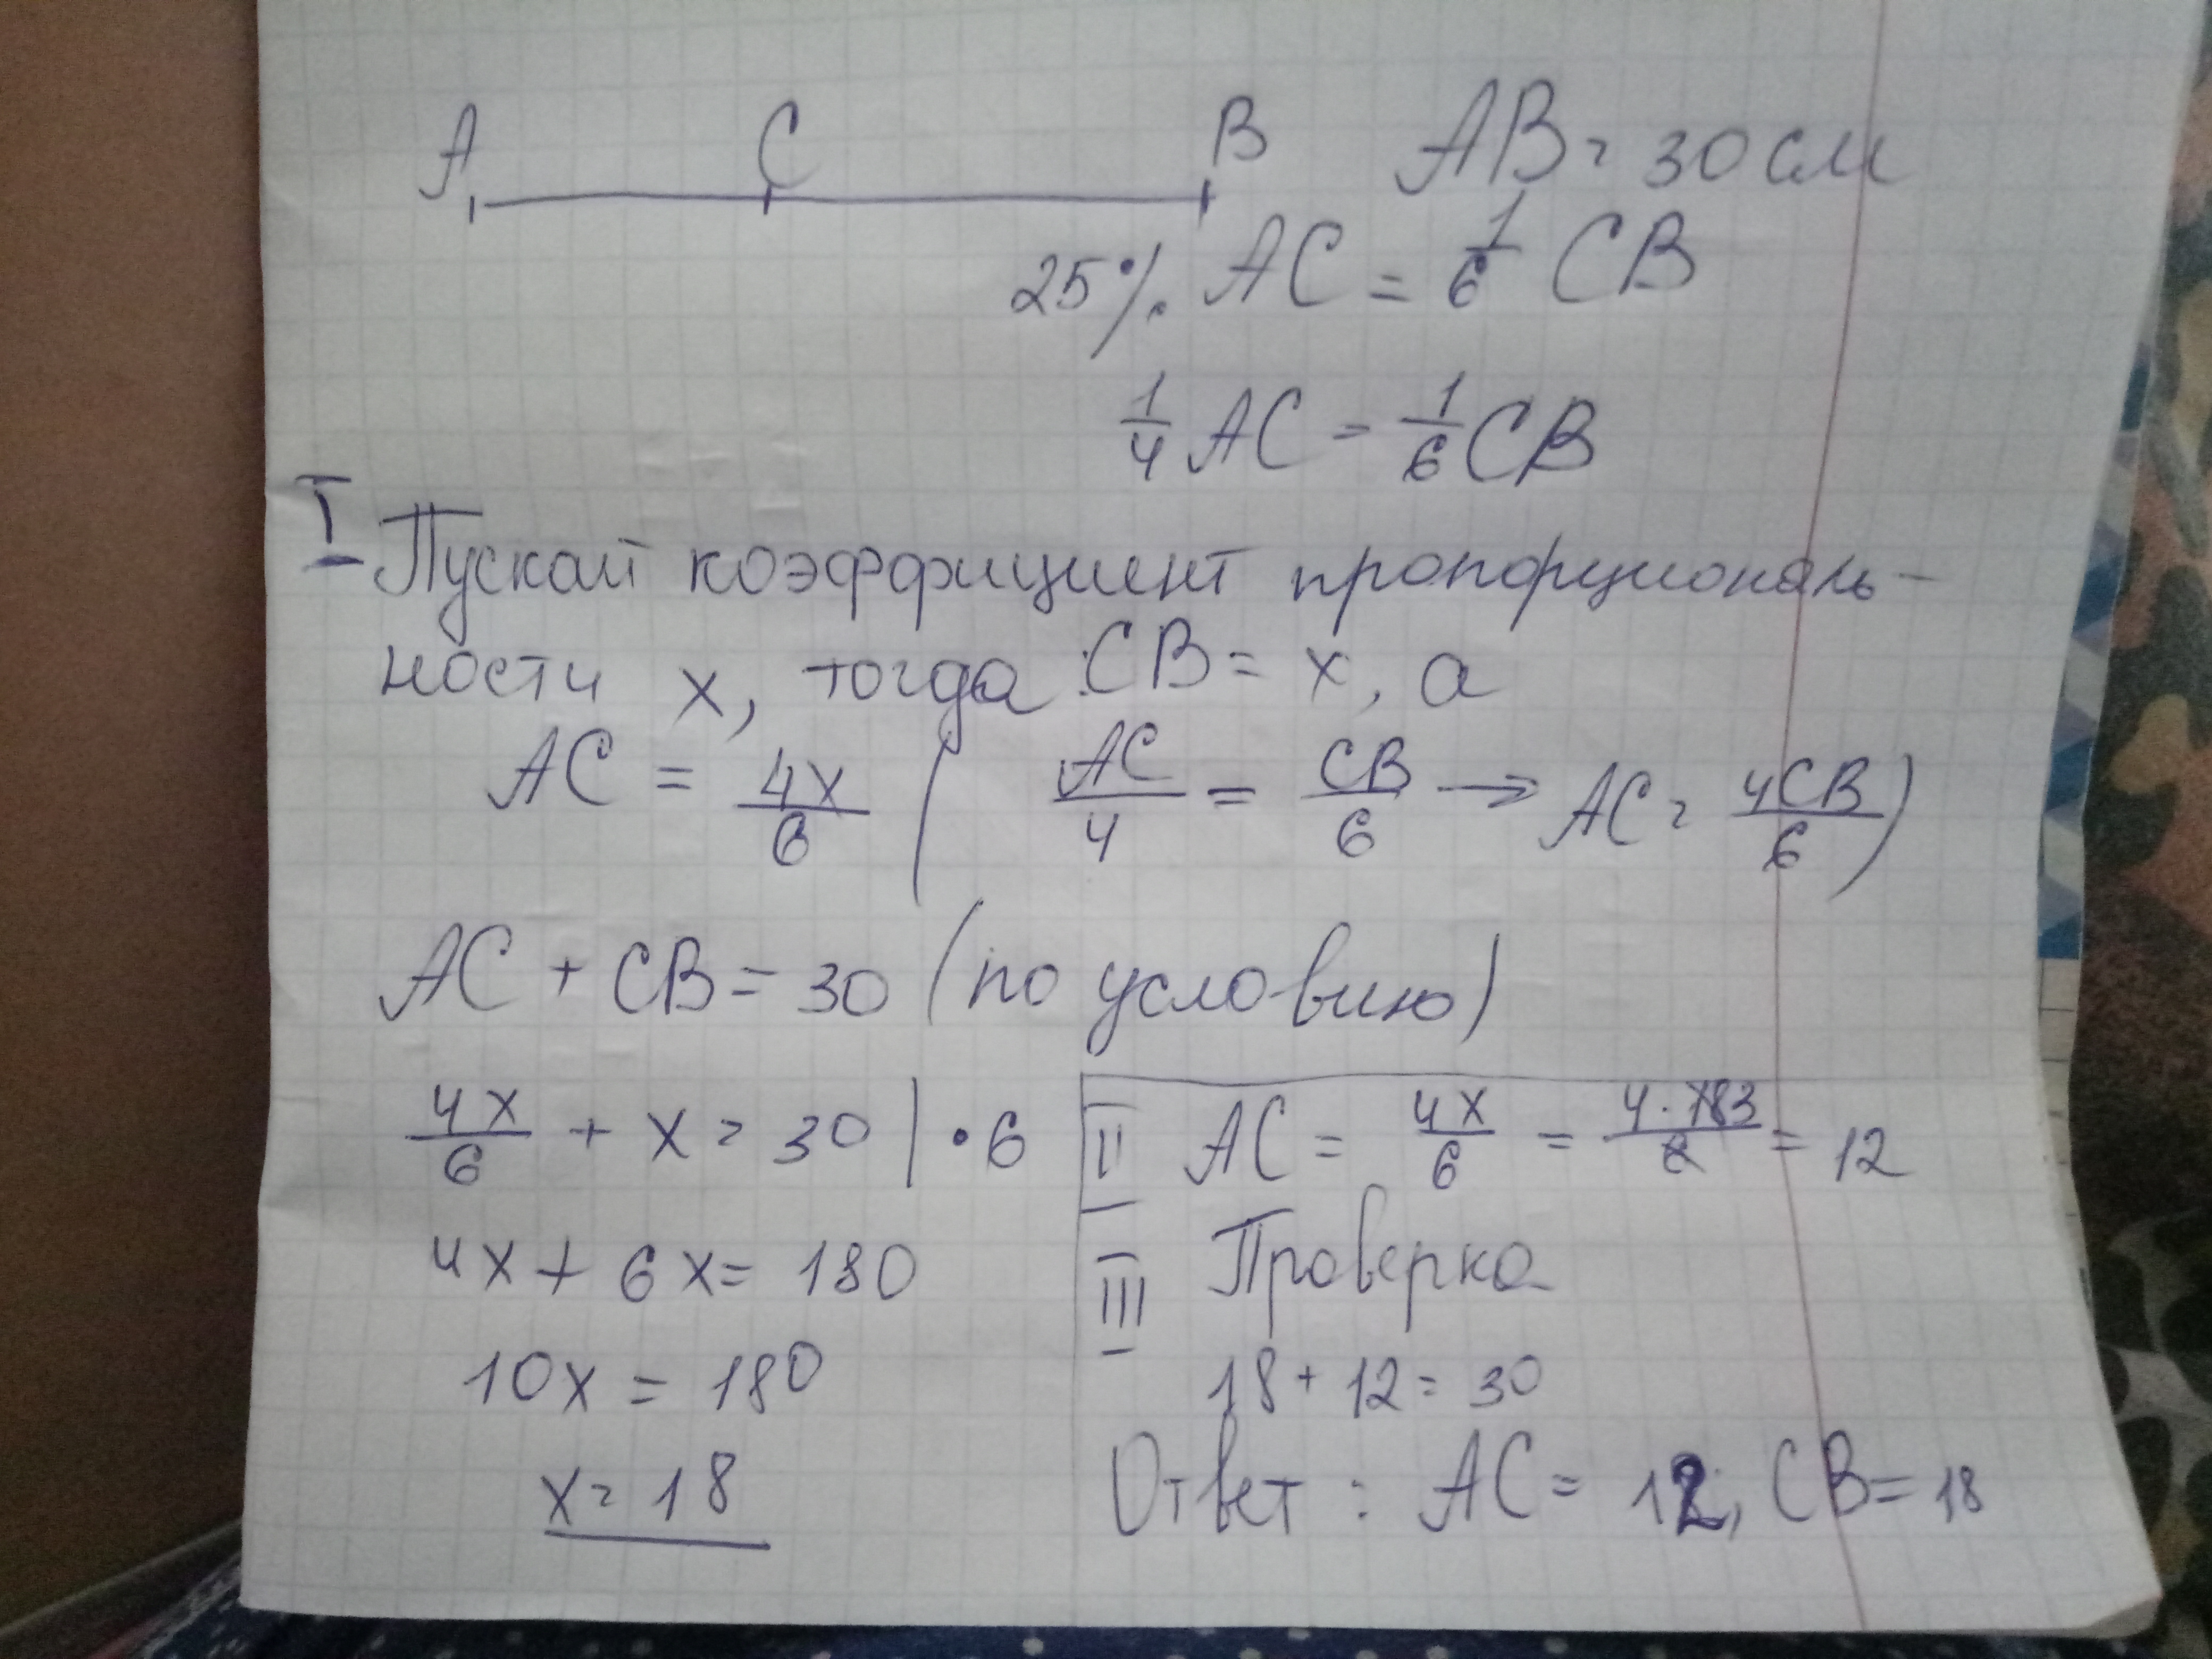 A C B AB = 30 см
25% AC = 1/6 CB
1/4 AC = 1/6 CB
I Пускай коэффициент пропорциональ-
ности x, тогда CB = x, а
AC = 4x/6 ( AC/4 = CB/6 → AC = 4CB/6 )
AC + CB = 30 (по условию)
4x/6 + x = 30 | • 6
4x + 6x = 180
10x = 180
x = 18
II AC = 4x/6 = 4 · 18 3/6 = 12
III Проверка
18 + 12 = 30
Ответ : AC = 12; CB = 18